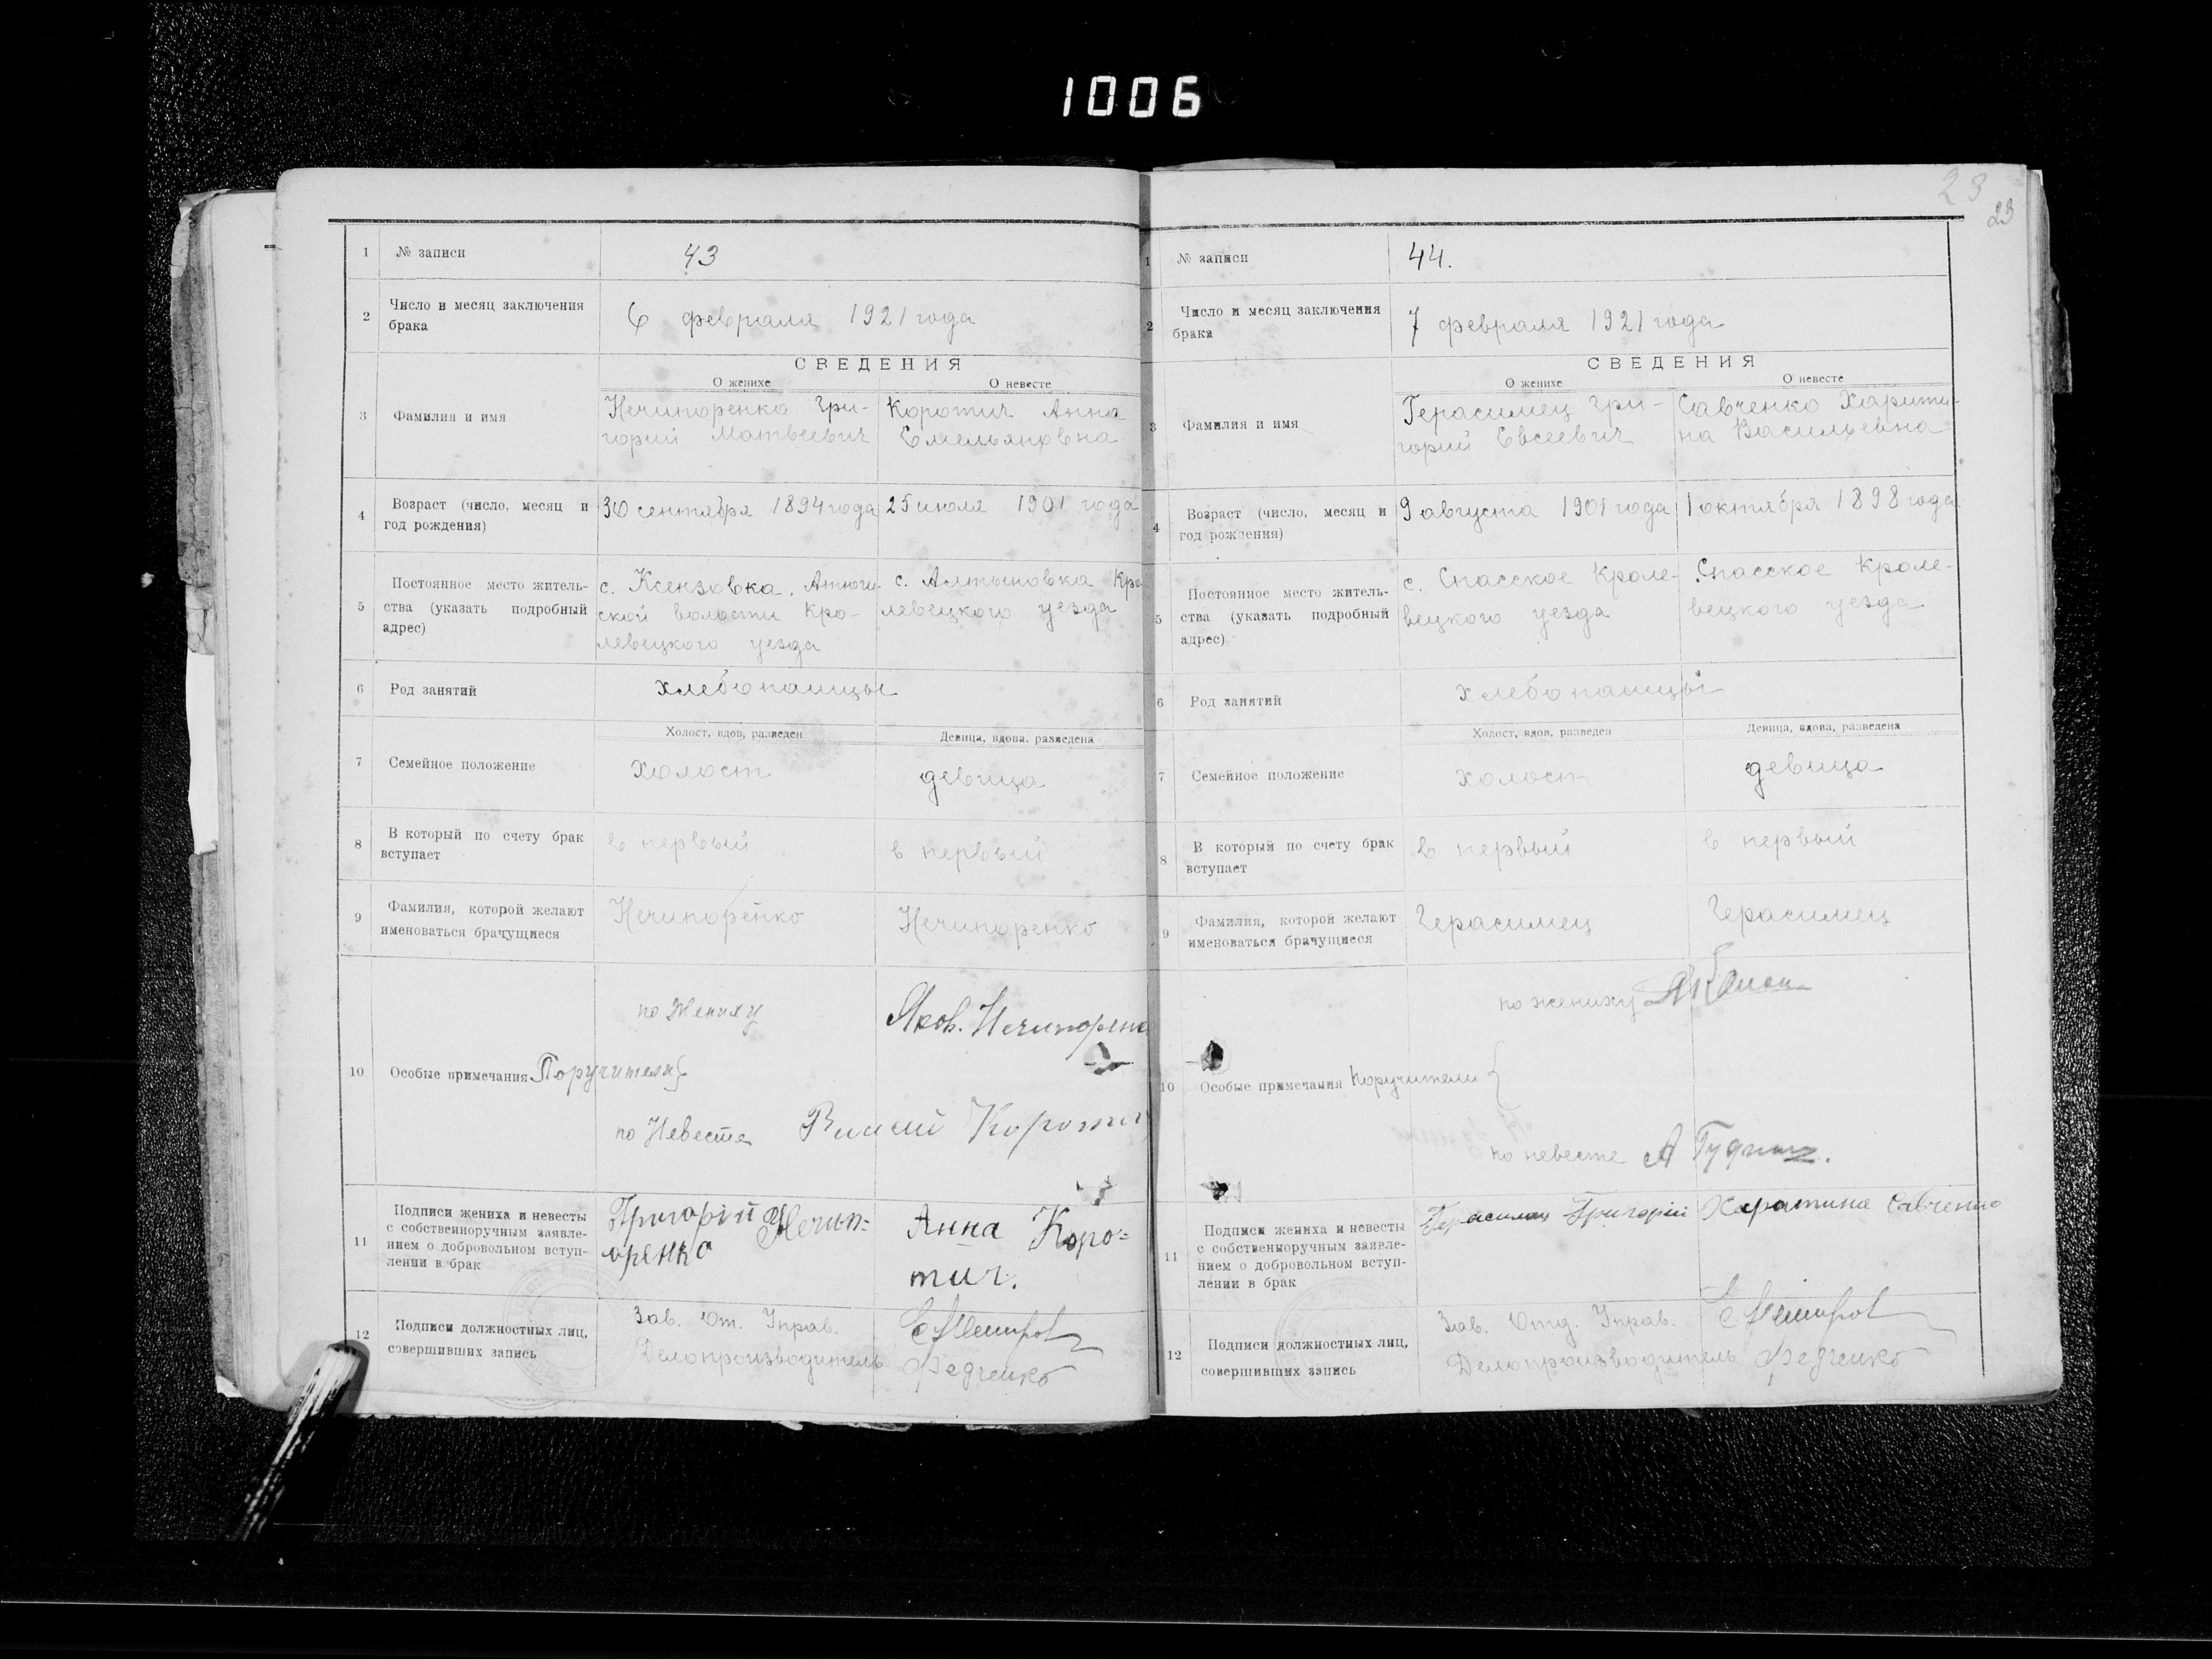 1006
23
23
1 № записи 43
2 Число и месяц заключения
брака
6 февраля 1921 года
СВЕДЕНИЯ
О женихе О невесте
3 Фамилия и имя
Нечипоренко Гри-
горий Матвеевич
Коротич Анна
Емельяновна
4 Возраст (число, месяц и
год рождения)
30 сентября 1894 года
25 июля 1901 года
5 Постоянное место житель-
ства (указать подробный
адрес)
с. Ксензовка,
ской волости Кро-
левецкого уезда
с. Алтыновка Кро
левецкого уезда
6 Род занятий
хлебопашцы
Холост, вдов, разведен Девица, вдова, разведена
7 Семейное положение
холост
девица
8 В который по счету брак
вступает
в первый
в первый
9 Фамилия, которой желают
именоваться брачущиеся
Нечипоренко
Нечипоренко
10 Особые примечания Поручители
по Жениху Яков. Нечипоренк
по Невесте Коротич
11 Подписи жениха и невесты
с собственноручным заявле-
нием о добровольном вступ-
лении в брак
Григорій Нечип=
оренко
Анна Коро=
тич.
12 Подписи должностных лиц,
совершивших запись
Зав. От. Управ.
Делопроизводитель Федченко
1 № записи 44.
2 Число и месяц заключения
брака
7 февраля 1921 года
СВЕДЕНИЯ
О женихе О невесте
3 Фамилия и имя
Герасимец Гри-
горий Евсеевич
Савченко Харити-
на Васильевна
4 Возраст (число, месяц и
год рождения)
9 августа 1901 года
1 октября 1898 года
5 Постоянное место житель-
ства (указать подробный
адрес)
с. Спасское Кроле-
вецкого уезда
с. Спасское Кроле-
вецкого уезда
6 Род занятий
хлебопашцы
Холост, вдов, разведен Девица, вдова, разведена
7 Семейное положение
холост
девица
8 В который по счету брак
вступает
в первый
в первый
9 Фамилия, которой желают
именоваться брачущиеся
Герасимец
Герасимец
10 Особые примечания Поручители
по жениху
по невесте А
11 Подписи жениха и невесты
с собственноручным заявле-
нием о добровольном вступ-
лении в брак
Герасимец Григорій
Харитина Савченко
12 Подписи должностных лиц,
совершивших запись
Зав. Отд. Управ.
Делопроизводитель Федченко